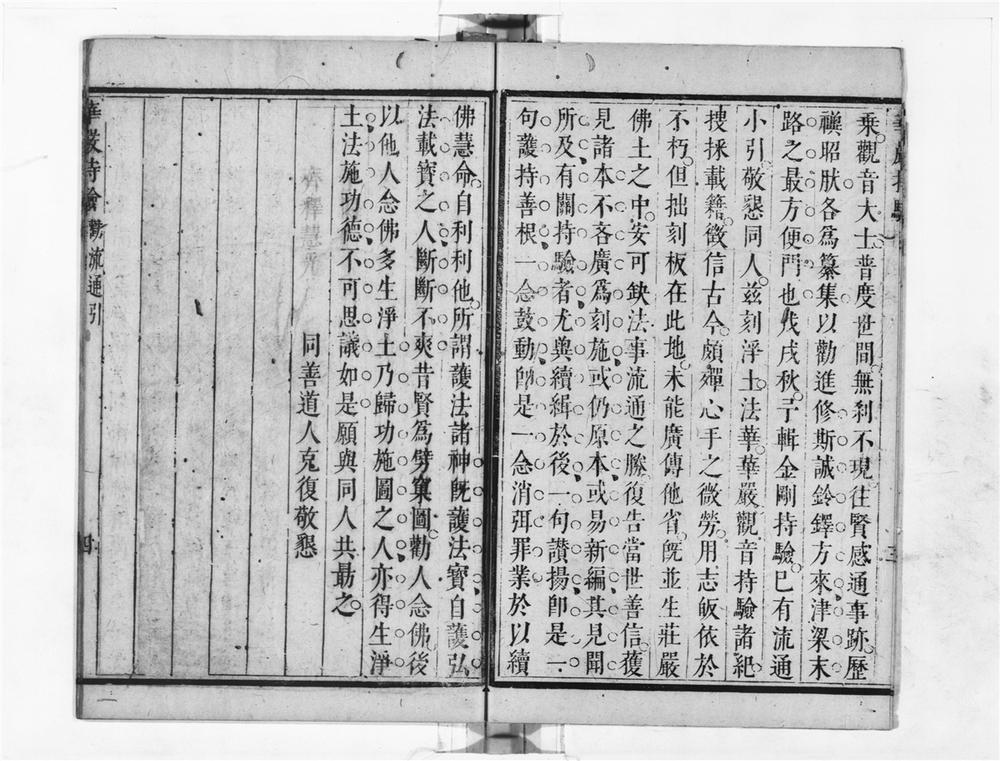 乘觀音大士普度世間無刹不現往賢感通事跡歷
禩昭肰各爲纂集以勸進修斯誠鈴鐸方來津梁末
路之最方便門也戊戌秋予輯金剛持驗已有流通
小引敬懇同人玆刻浄土法華華嚴觀音持驗諸紀
搜採載籍徵信古今頗殫心手之微勞用志皈依於
不朽但拙刻板在此地未能廣傳他省旣並生莊嚴
佛土之中安可缺法事流通之勝復告當世善信獲
見諸本不吝廣爲刻施或仍原本或易新編其見聞
所及有關持驗者尤與續緝於後一句讚揚卽是一
句護持善根一念鼓動卽是一念消弭罪業於以續
佛慧命自利利他所謂護法諸神旣護法寶自護弘
法載寶之人斷斷不爽昔賢爲劈窠圖勸人念佛後
以他人念佛多生淨土乃歸功施圖之人亦得生淨
土法施功德不可思議如是願與同人共勗之
同善道人克復敬懇
華嚴持驗勸流通引
四